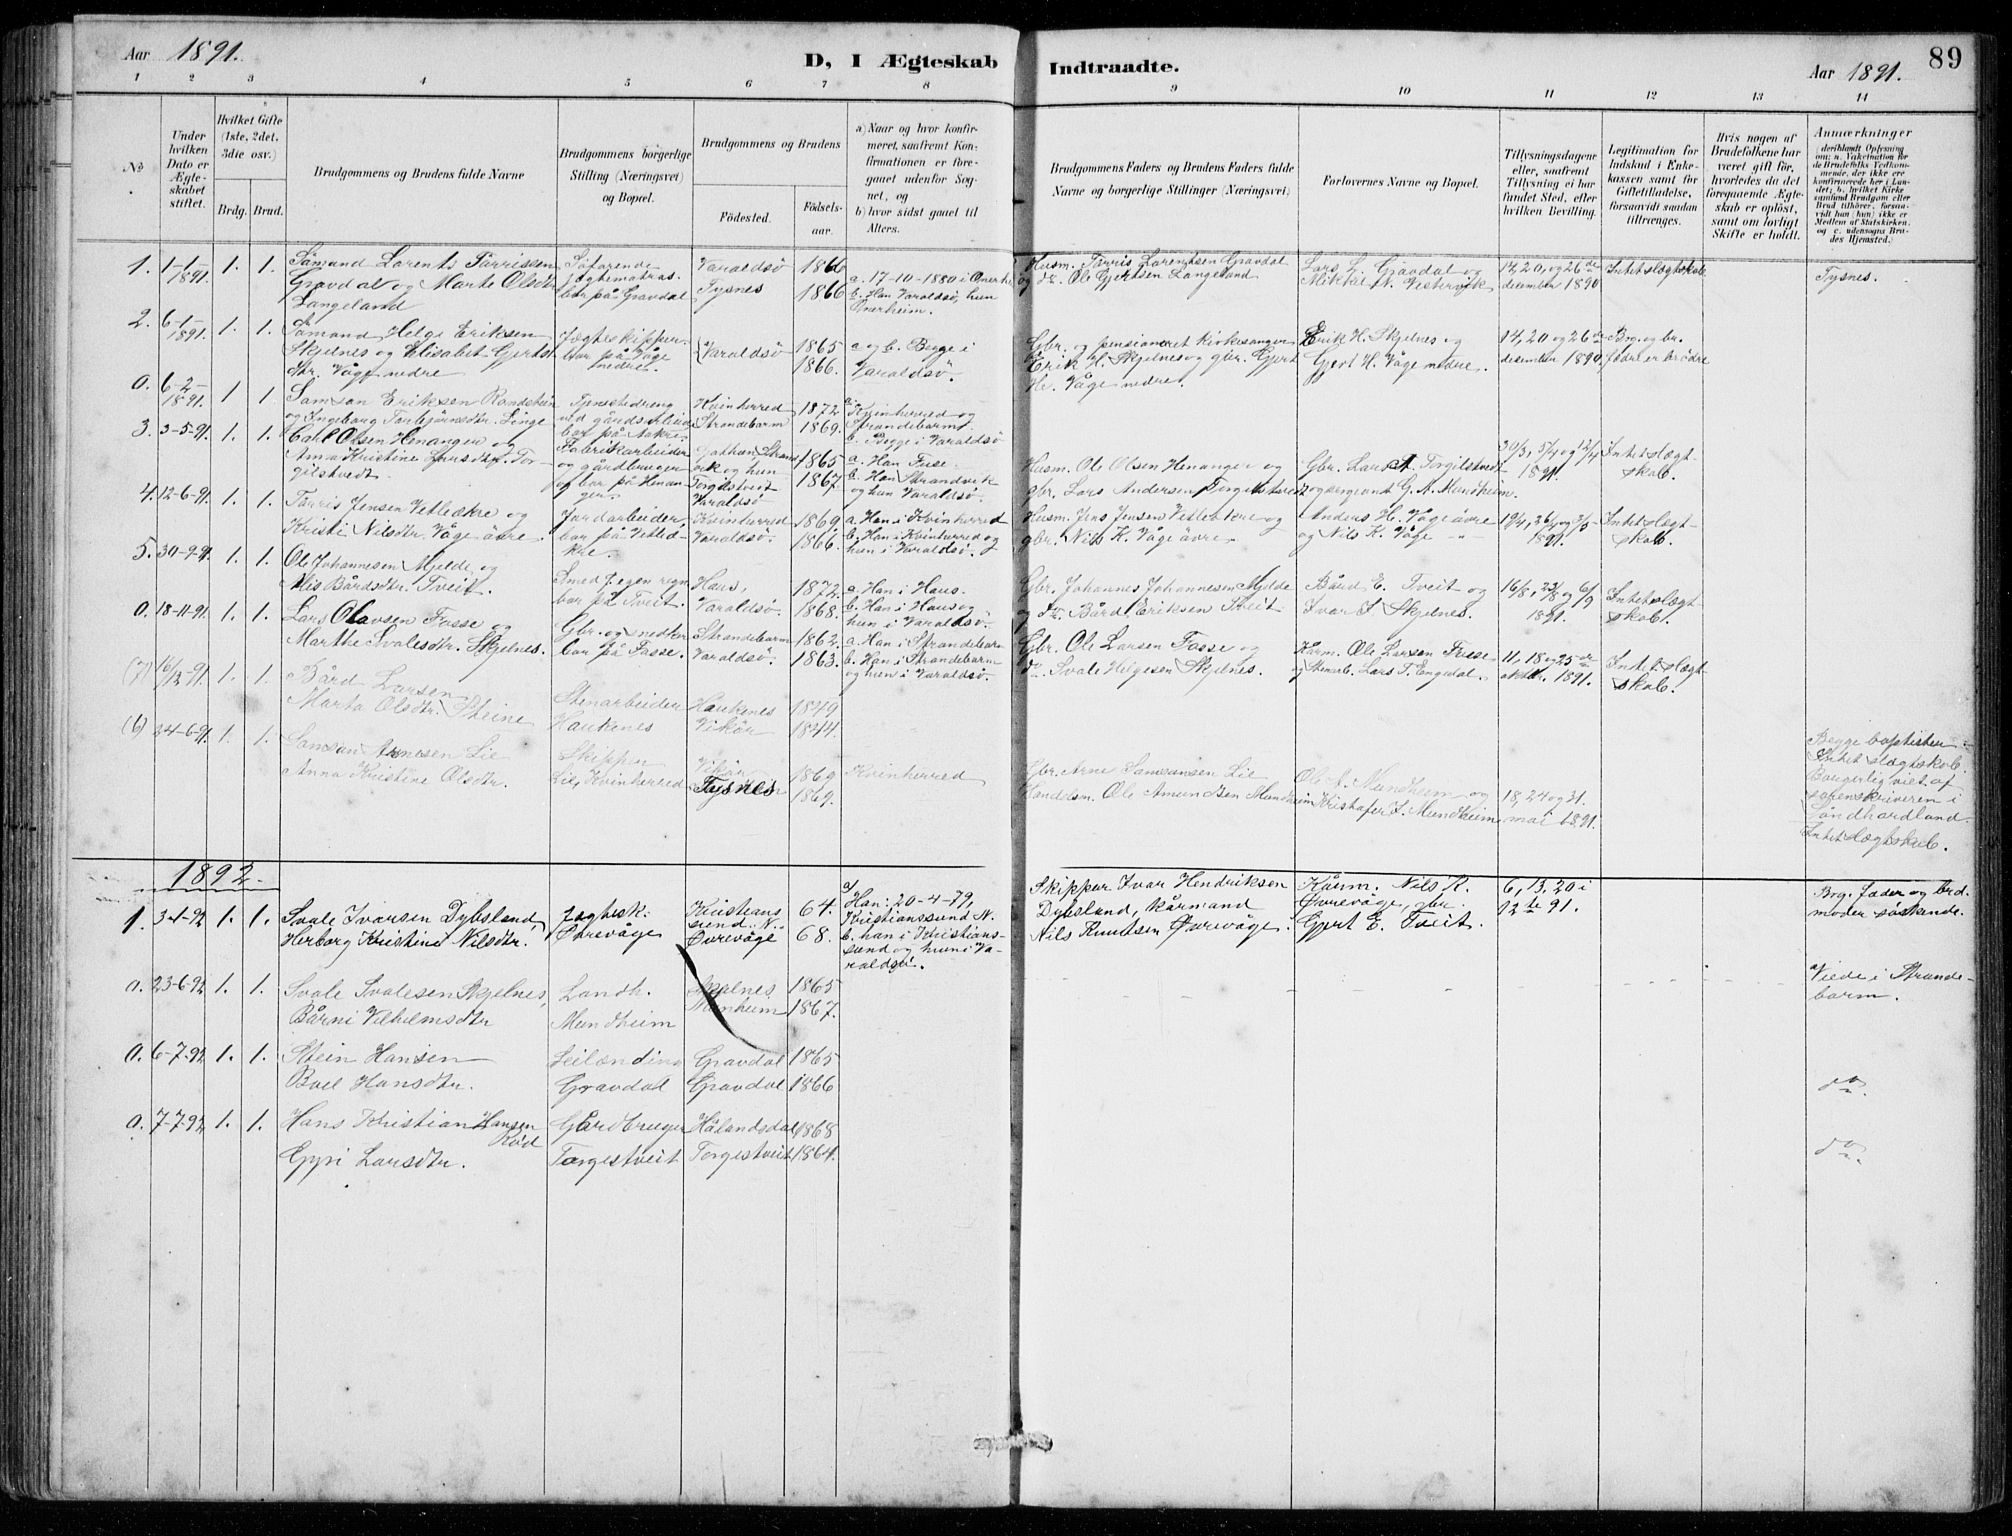 Aar 1891.
D, I Ægteskab Indtraadte.
Aar 1891.
89
1 2 3 4 5 6 7 8 9 10 11 12 13 14
No
Under hvilken Dato er Ægteskabet stiftet.
Hvilket Gifte (1ste, 2det, 3die osv.)
Brdg. Brud.
Brudgommens og Brudens fulde Navne
Brudgommens borgerlige Stilling (Næringsvei) og Bopæl.
Brudgommens og Brudens
Fødested.
Fødselsaar.
a) Naar og hvor konfirmeret, saafremt Konfirmationen er foregaaet udenfor Sognet, og
b) hvor sidst gaaet til Alters.
Brudgommens Faders og Brudens Faders fulde Navne og borgerlige Stillinger (Næringsvei)
Forlovernes Navne og Bopæl.
Tillysningsdagene eller, saafremt Tillysning ei har fundet Sted, efter hvilken Bevilling.
Legitimation for Indskud i Enkekassen samt for Giftetilladelse, forsaavidt saadan tiltrænges.
Hvis nogen af Brudefolkene har været gift før, hvorledes da det foregaaende Ægteskab er opløst, samt om lovligt Skifte er holdt.
Anmærkninger
1. 1-1-1891. 1. 1. Sømand Lorents Tørrissen Gravdal og Marte Olsdtr. Langeland
Søfarende Jægtematros bor på Gravdal
Varaldsø 1866
Tysnes 1866
a. 17-10-1880 i Onarheim b. Han Varaldsø, hun Onarheim.
Husm. Tørris Lorentsen Gravdal og do. Ole Gjertsen Langeland
Lars L. Gravdal og Mikkal N. Vestervik
14, 20, og 26de december 1890
Intet slægtskab
Tysnes.
2. 6-1-1891. 1. 1. Sømand Helge Eriksen Skjelnes og Elisabet Gjertsdtr. Våge nedre
Jægteskipper bor på Våge nedre.
Varaldsø 1865 1866.
a og b. Begge i Varaldsø.
Gbr. og pensioneret kirkesanger Erik H. Skjelnes og gbr. Gjert H. Våge nedre.
Erik H. Skjelnes og Gjert H. Våge nedre.
14, 20 og 26de desember 1890
Brg. og br. fædre er brødre
0. 6-2-1891. 1 1 Samson Eriksen og Ingeborg Torbjørnsdtr. Linge
Tjenestedreng
Kvinherred 1872
Strandebarm 1869.
Kvinherred og Strandebarm. b. Begge i Varaldsø
3. 3-5-91. 1. 1. Carl Olsen Henanger og Anna Kristine Larsdtr. Torgilstvedt.
Fabrikarbeider og gårdbruger og bor på Henanger.
og hun Torgilstveit Varaldsø 1865 1867.
a. Han Fuse. b. Han Strandvik og hun Varaldsø.
Husm. Ole Olsen Henanger og gbr. Lars Andersen Torgilstvedt
Gbr. Lars A. Torgilstvedt og sergeant G. A. Mundheim.
30/3, 5/4 og 12/4 1891.
Intet slægtskab.
4. 12-6-91. 1. 1. Tørris Jensen Vetleøkre og Kristi Nilsdtr. Våge øvre.
Jordarbeider,
Kvinherred 1869
Varaldsø. 1866.
a. Han i Kvinherred b. Han i Kvinherred og hun i Varaldsø.
Husm. Jens Jensen og gbr. Nils K. Våge øvre.
Anders H. Våge øvre og Nils K. Våge -"-
1891.
Intet slægtskab.
5. 30-9-91. 1. 1. Ole Johannesen Mjelde og Bårdsdtr. Tveit.
Smed f. egen regn. bor på Tveit.
Haus, 1872.
Varaldsø. 1868.
a. Han i Haus. b. Han i Haus og hun i Varaldsø.
Gbr. Johannes Johannesen Mjelde og do. Bård Eriksen Tveit
Bård E. Tveit og Ivar S. Skjelnes.
16/8, 23/8 og 6/9 1891.
Intet slægtskab.
0. 18-11-91. 1. 1. Lars Olavsen Fosse og Marthe Svalesdtr. Skjelnes.
Gbr. og snedker bor på Fosse.
Strandebarm 1862.
Varaldsø. 1863.
a. Han i Strandebarm b. Han i Strandebarm og hun i Varaldsø.
Gbr. Ole Larsen Fosse og do. Svale Helgesen Skjelnes.
Kårm. Ole Larsen Fosse og Stenarb. Lars T. Engedal.
11, 18 og 25de oktbr. 1891.
Intet slægtskab.
(7) 16/12-91. 1. 1. Bård Larsen
Marta Olsdtr. Steine
Stenarbeider Haukenes
Haukenes 1849
Vikør 1844.
Begge baptister. Intet slægtskab. Borgerlig viet af sorenskriveren i Søndhordland. Intet slægtskab.
(6) 24-6-91. 1. 1. Samson Arnesen Lie
Anna Kristine Olsdtr.
Skipper Lie, Kvinherred
Vikør 1869
Tysnes 1869.
Kvinherred
Gbr. Arne Samsonsen Lie
Handelsm. Ole Amundsen Mundheim
Ole A. Mundheim og Kristofer J. Mundheim
18, 24 og 31. mai 1891.
1892.
1. 3-1-92 1. 1. Svale Ivarsen Dybsland,
Herborg Kristine Nilsdtr.
Jægtesk. Øvrevåge
Kristianssund N. 64.
Øvrevåge 68.
a) Han: 20-4-79, Kristianssund N. b. han i Kristianssund og hun i Varaldsø.
Skipper Ivar Hendriksen Dybsland, kårmand Nils Knutsen Øvrevåge.
Kårm. Nils K. Øvrevåge, gbr. Gjert E. Tveit.
6, 13, 20 i 12te 91.
Brg. fader og brd. moder søskende.
0. 23-6-92. 1. 1. Svale Svalesen Skjelnes,
Bårni Vilhelmsdtr
Landh. Mundheim
Skjelnes 1865
Munheim 1867.
Viede i Strandebarm.
0. 6-7-92 1. 1. Stein Hansen
Boel Hansdtr.
Leilænding Gravdal
Gravdal 1865
Gravdal 1866
do.
0. 7-7-92 1. 1. Hans Kristian Hansen Rød
Gyri Larsdtr.
Gårdbruger Torgestveit
Hålandsdal 1868
Torgestveit 1864.
do.